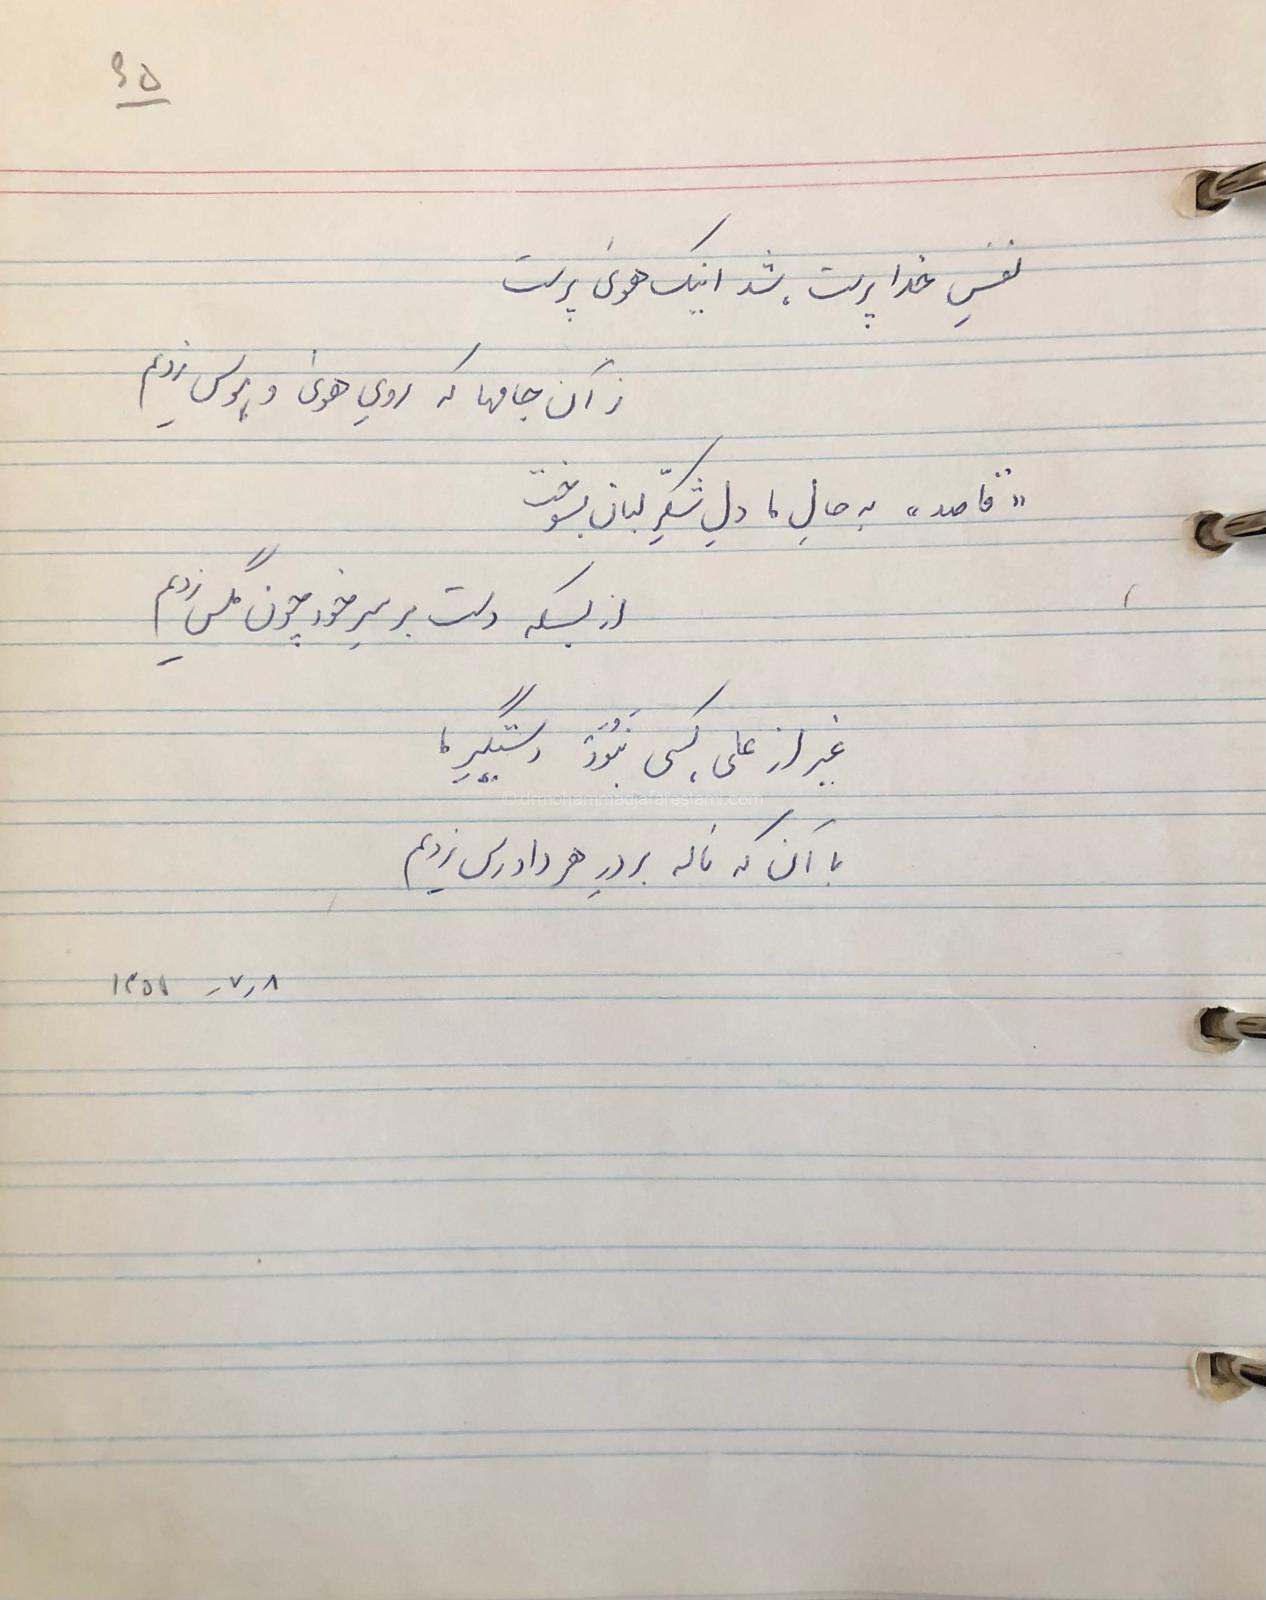 ۶۵
نفسِ خدا پرست، شد اینک هویٰ پرست
ز آن جامها که رویِ هویٰ و هوس زدیم
«قاصد» به حالِ ما دلِ شکّر لبان بسوخت
از بسکه دست بر سرِ خود چون مگس زدیم
غیر از علی، کسی نَبُوَدْ دستگیرِ ما
با آن که ناله بر درِ هر دادرس زدیم
۸ ر ۷ ر ۱۳۵۸
© drmohammadjafareslami.com